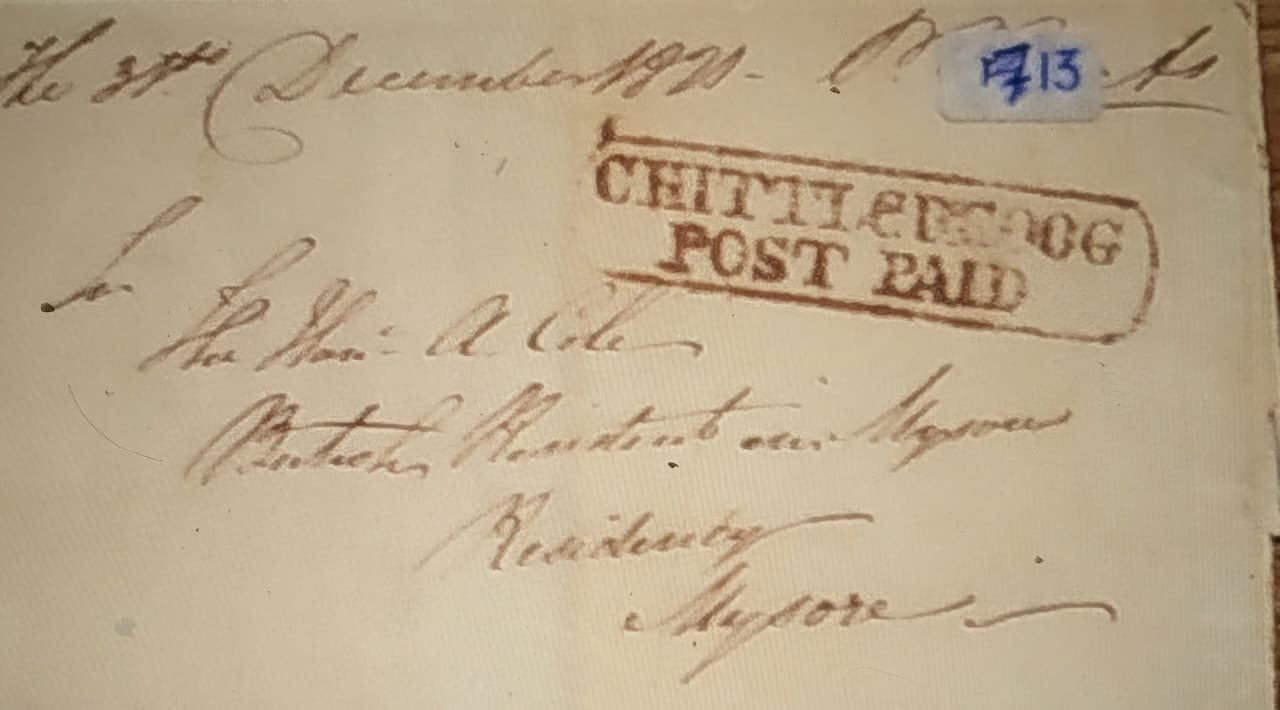 The 31st December
713 As
CHITTLEDROOG
POST PAID
To
The Hon: A Cole
British Resident in Mysore
Residency
Mysore